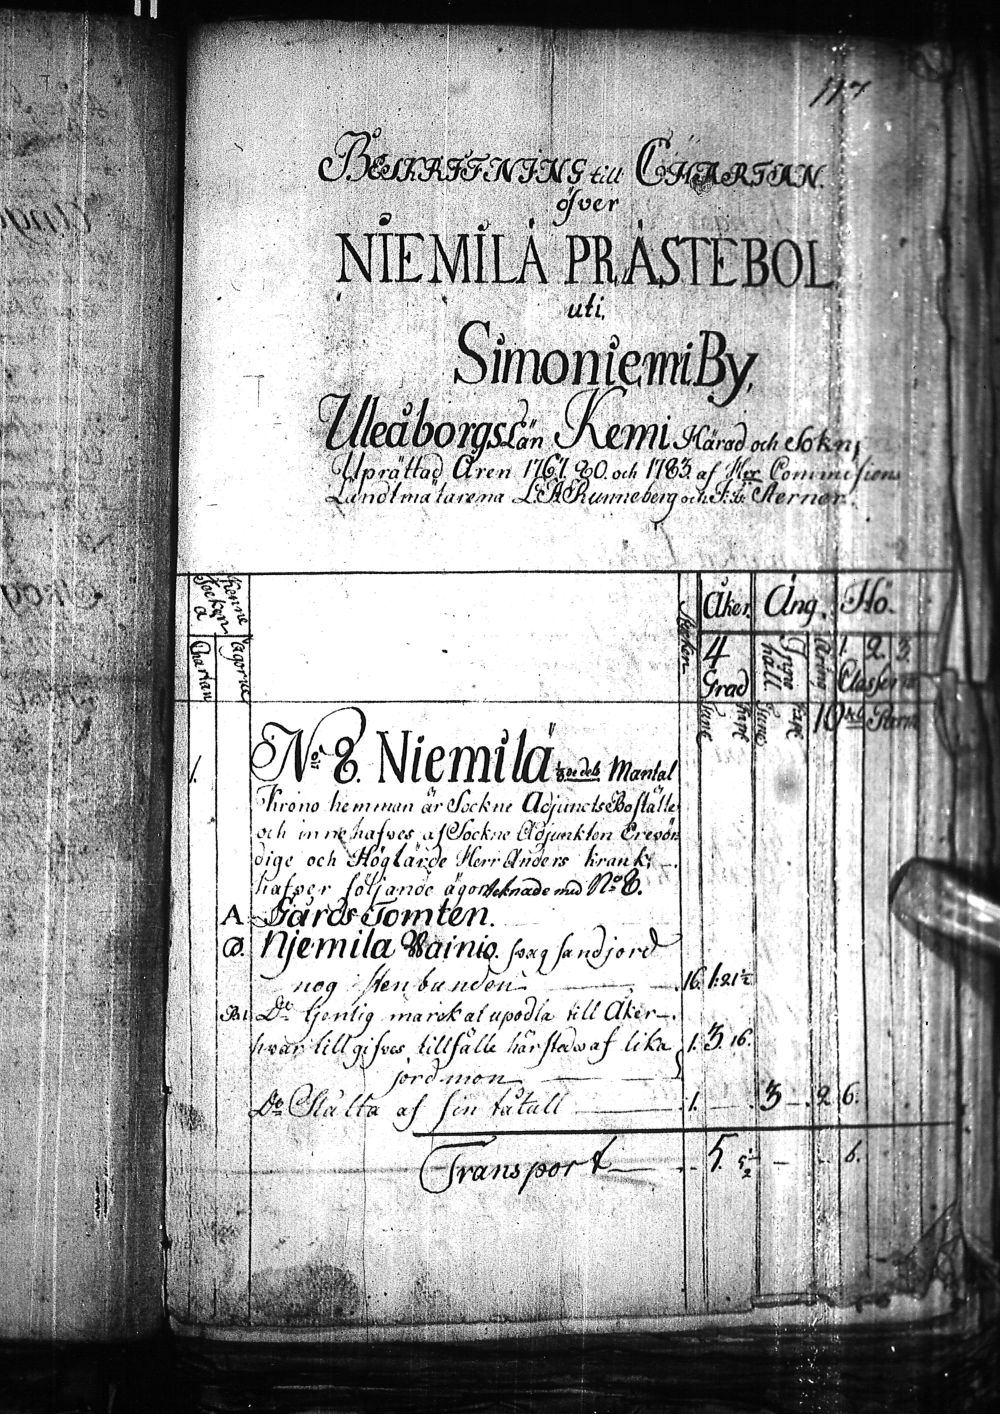 117
BESKRIFFNING till CHARTAN
öfver
NIEMILÄ PRÄSTEBOL
uti
Simoniemi By,
Uleåborgs Län Kemi Härad och Sokn,
Uprättad Åren 1767 80. och 1783 af Commissions
Landtmätarena Runneberg och Aerner.
Åker. Äng. Hö.
4 Grad Inne håll 1. 2. 3
Classerne
Chartan Ägorne
10 Parm
1. Noir 8. Niemilä Mantal
Krono hemman är Sockne Adjuncts Boställe
och innehafves af Sockne Adjunkten Erevör-
dige och Höglärde Herr Anders Krank;
hafver följande ägor teknade med No 8.
A Gårds Tomten.
a. Njemila Wainio. svag sandjord
nog stenbunden 16. 1. 21½
Bi Do tjenlig mark at upodla till Åker
hvar till gifves tillfälle härstedes af lika 1. 3. 16.
jordmon
Do Slåtta af sin tåtall 1. 3 2. 6.
Transport 5. 5½ 6.